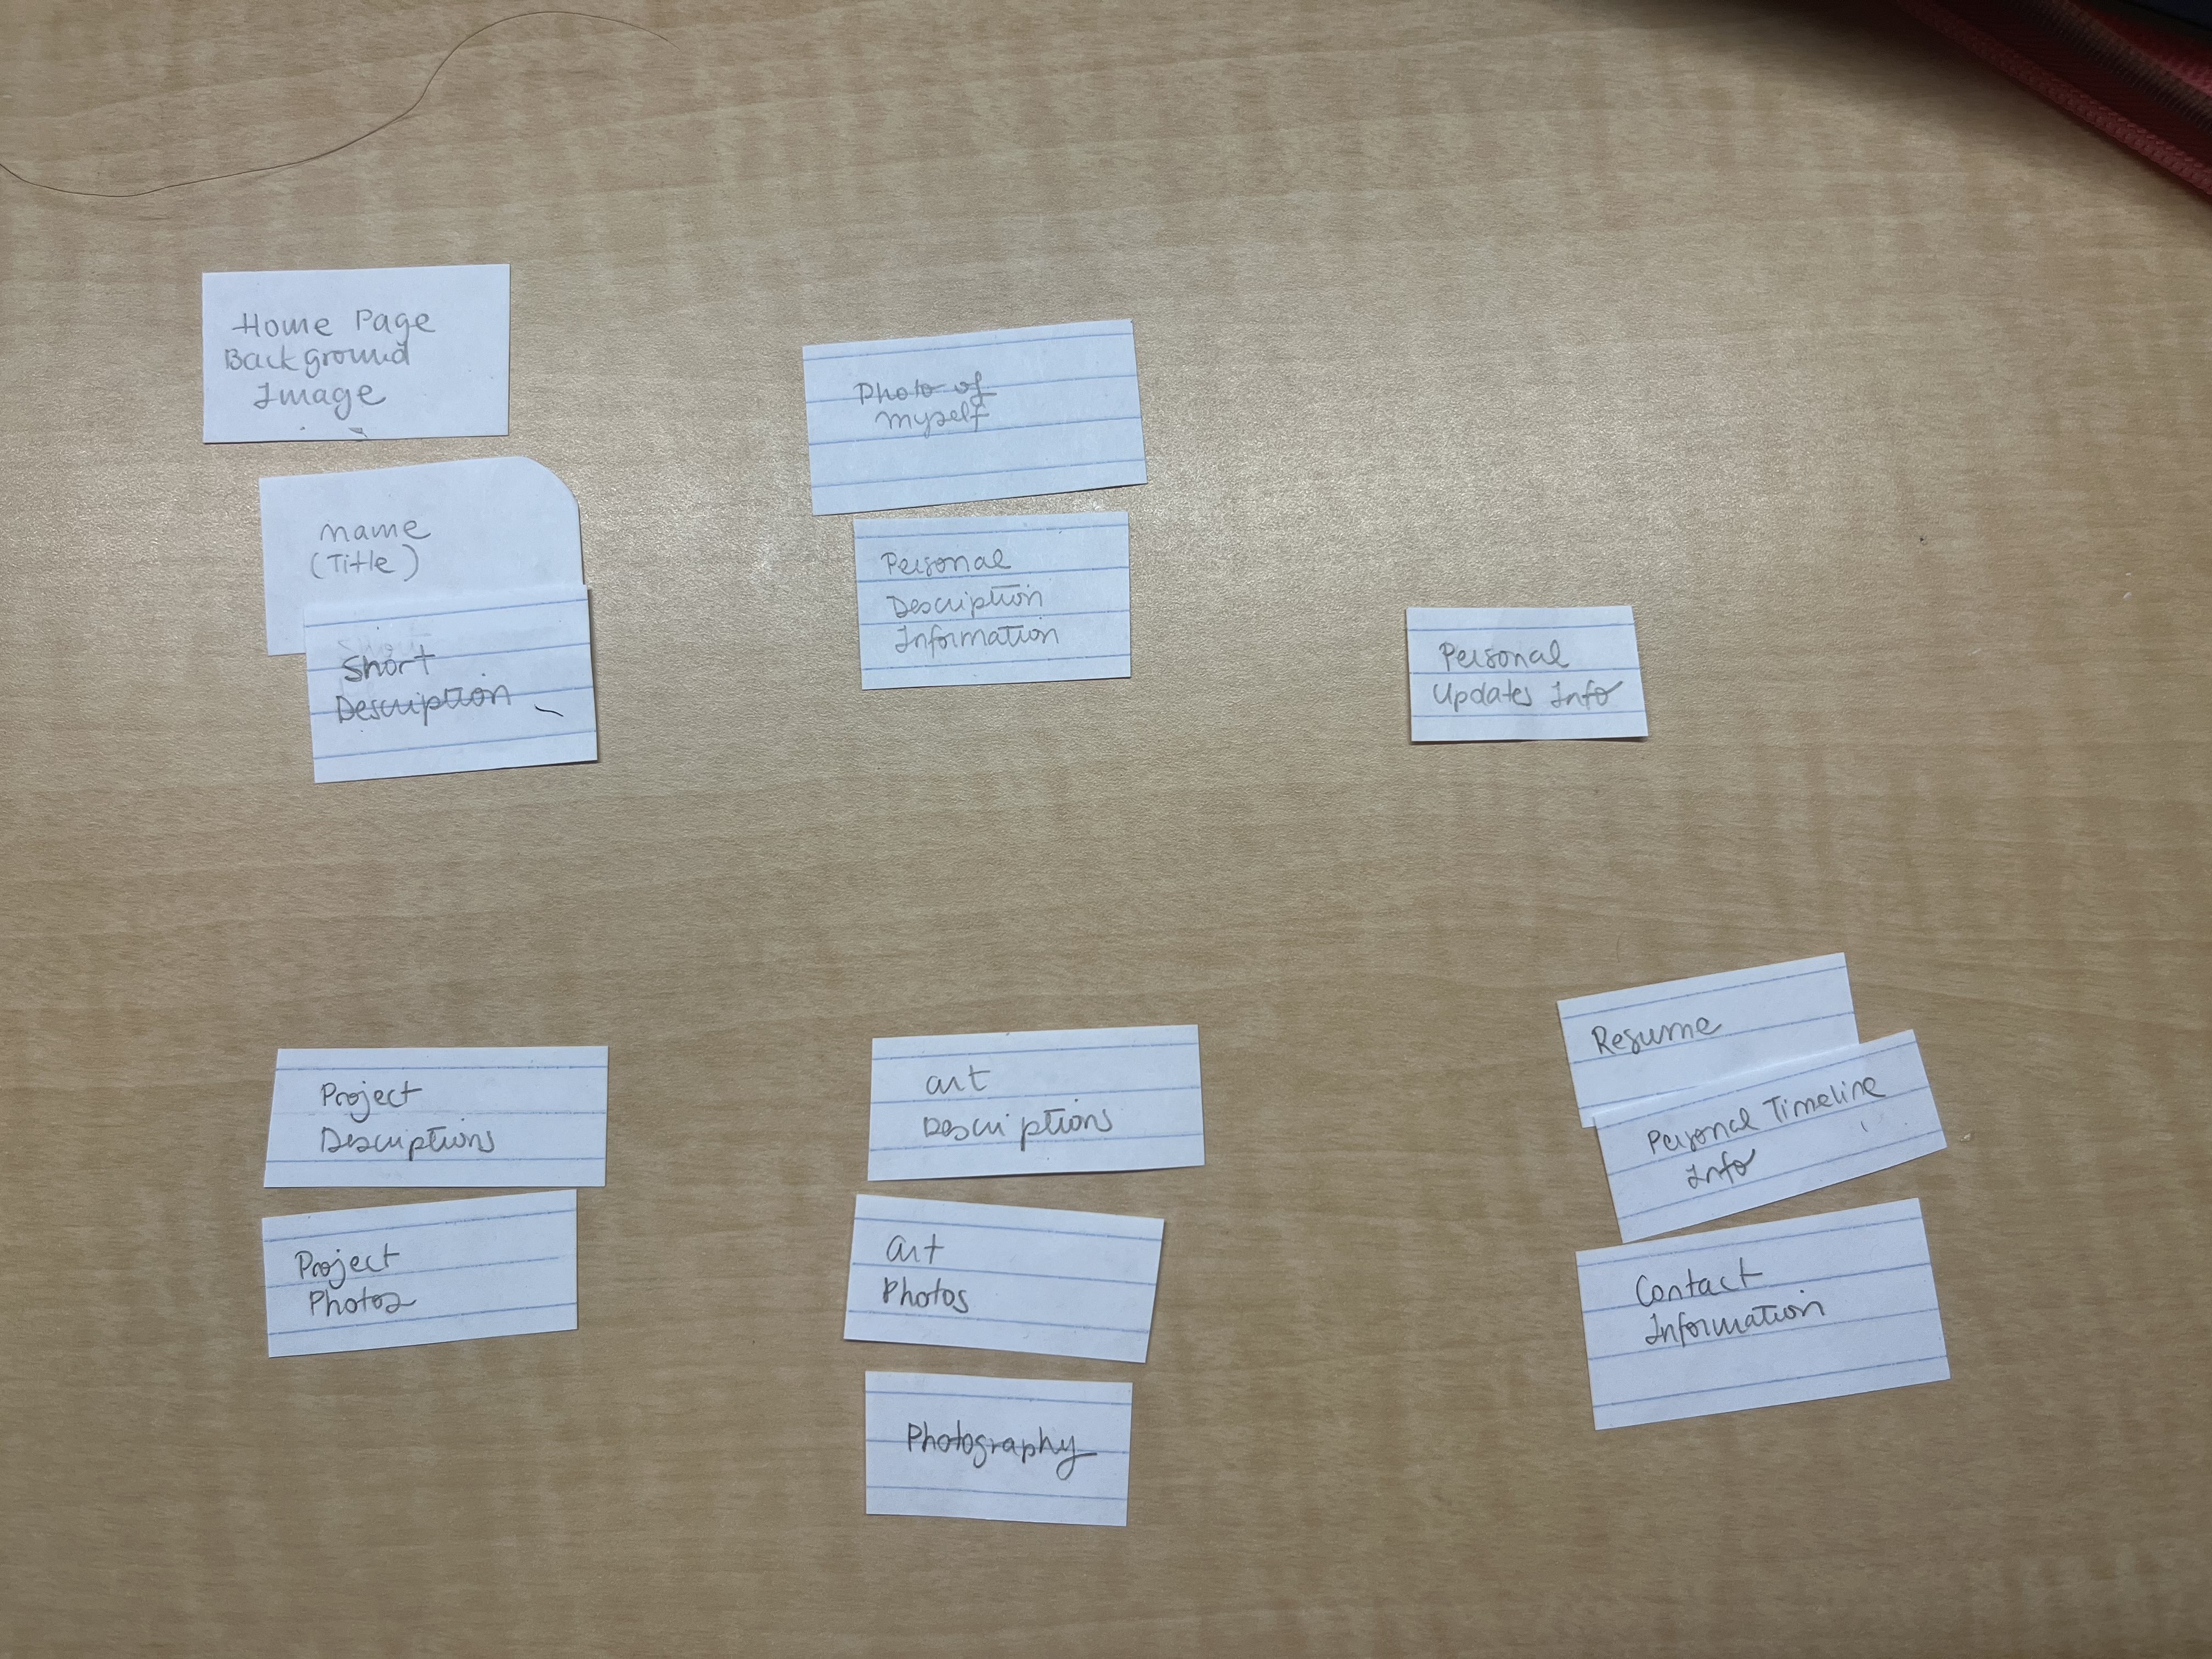 Home Page
Background
Image
name
(Title)
Short
Description
Photo of
myself
Personal
Description
Information
Personal
Updates Info
Project
Descriptions
Project
Photos
art
Descriptions
art
Photos
Photography
Resume
Personal Timeline
Info
Contact
Information